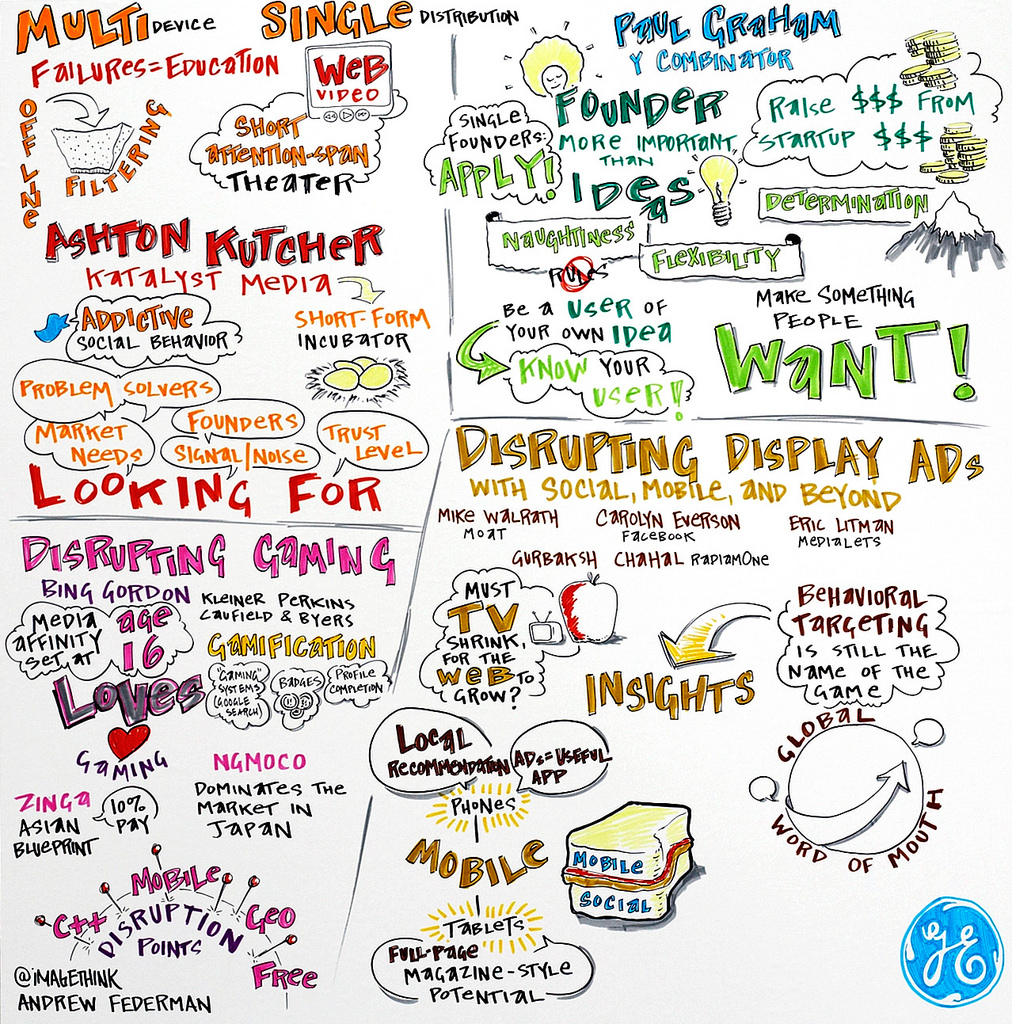 MULTI DEVICE SINGLE DISTRIBUTION
FAILURES=EDUCATION
WEB
VIDEO
OFFLINE
FILTERING
SHORT
ATTENTION-SPAN
THEATER
ASHTON KUTCHER
KATALYST MEDIA
ADDICTIVE
SOCIAL BEHAVIOR
SHORT-FORM
INCUBATOR
PROBLEM SOLVERS
MARKET
NEEDS
FOUNDERS
SIGNAL/NOISE
TRUST
LEVEL
LOOKING FOR
PAUL GRAHAM
Y COMBINATOR
SINGLE
FOUNDERS:
APPLY!
FOUNDER
MORE IMPORTANT
THAN
IDEAS
RAISE $$$ FROM
STARTUP $$$
DETERMINATION
NAUGHTINESS
RULES
FLEXIBILITY
BE A USER OF
YOUR OWN IDEA
KNOW YOUR
USER!!
MAKE SOMETHING
PEOPLE
WANT!
DISRUPTING GAMING
BING GORDON KLEINER PERKINS
CAUFIELD & BYERS
MEDIA
AFFINITY
SET AT
AGE
16
LOVES
GAMING
GAMIFICATION
"GAMING"
SYSTEMS
(GOOGLE
SEARCH)
BADGES
PROFILE
COMPLETION
NGMOCO
DOMINATES THE
MARKET IN
JAPAN
ZINGA
ASIAN
BLUEPRINT
10%
PAY
C++
MOBILE
GEO
FREE
DISRUPTION
POINTS
@IMAGETHINK
ANDREW FEDERMAN
DISRUPTING DISPLAY ADS
WITH SOCIAL, MOBILE, AND BEYOND
MIKE WALRATH
MOAT
CAROLYN EVERSON
FACEBOOK
ERIC LITMAN
MEDIALETS
GURBAKSH CHAHAL RADIAMONE
MUST
TV
SHRINK,
FOR THE
WEB TO
GROW?
INSIGHTS
BEHAVIORAL
TARGETING
IS STILL THE
NAME OF THE
GAME
GLOBAL
WORD OF MOUTH
LOCAL
RECOMMENDATION
ADS=USEFUL
APP
PHONES
MOBILE
TABLETS
FULL-PAGE
MAGAZINE-STYLE
POTENTIAL
MOBILE
SOCIAL
GE